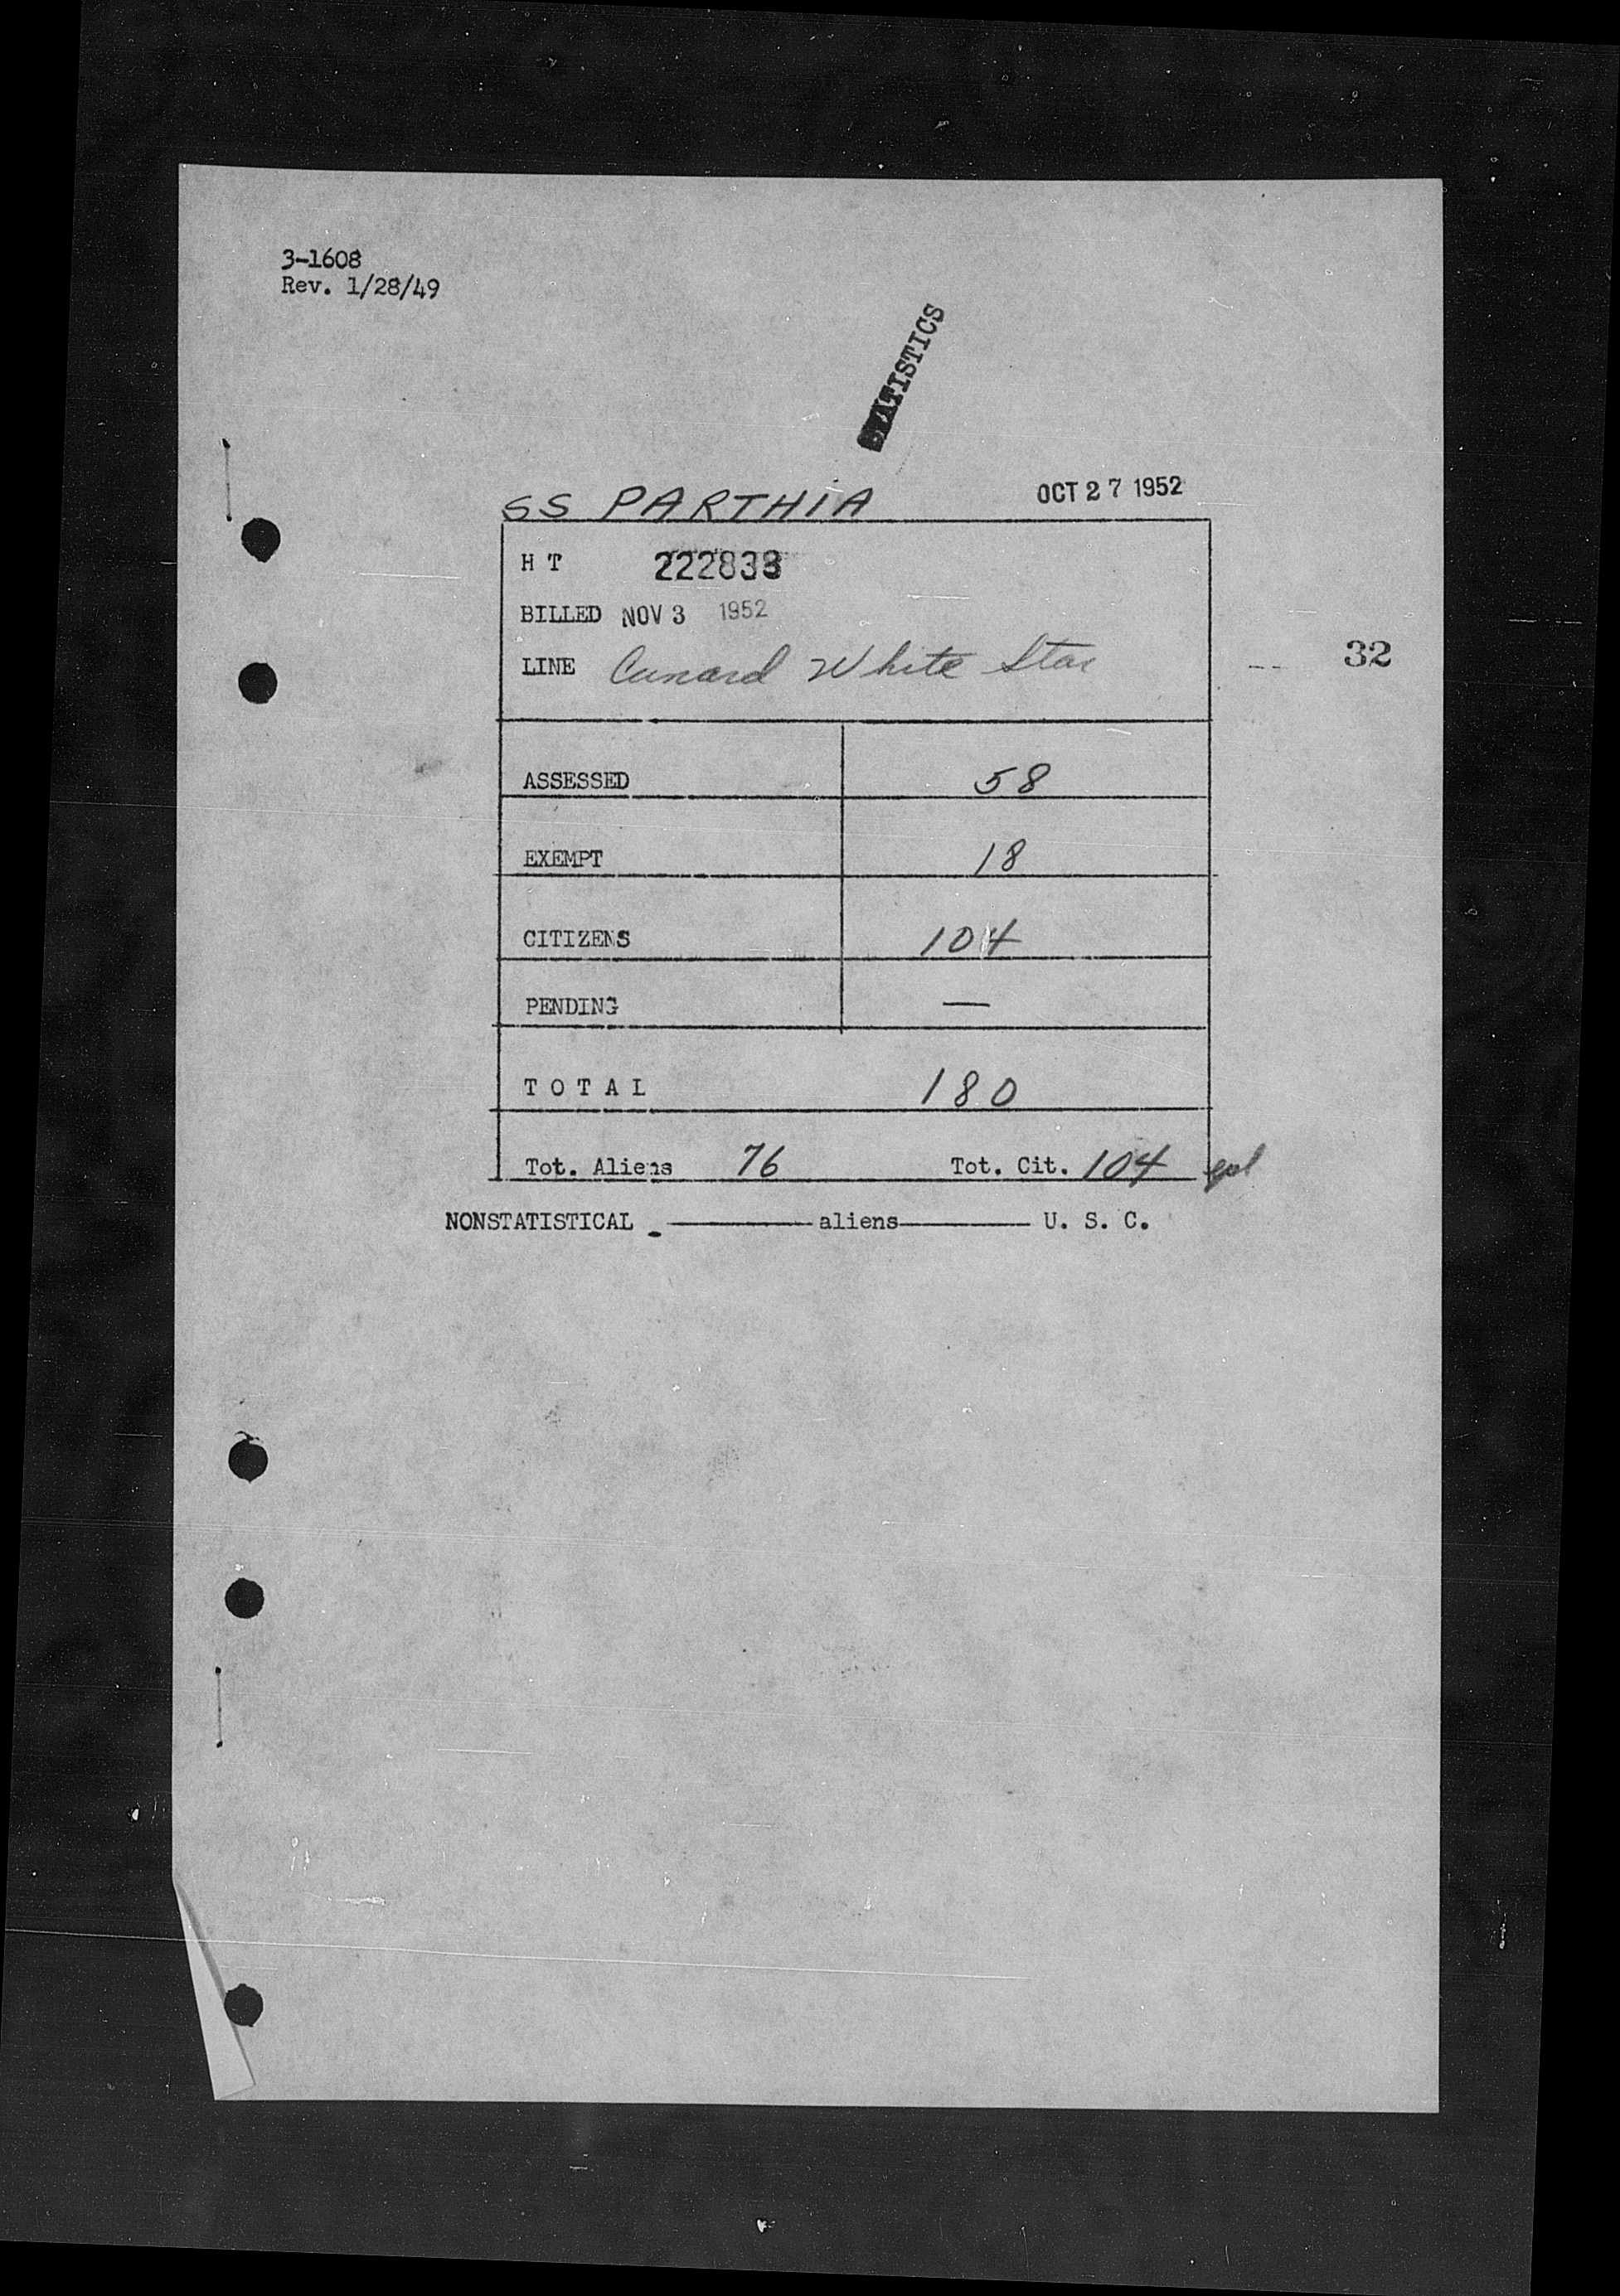 3-1608
Rev. 1/28/49
STATISTICS
SS PARTHIA OCT 27 1952
H T 222833
BILLED NOV 3 1952
LINE Cunard White Star
32
ASSESSED 58
EXEMPT 18
CITIZENS 104
PENDING —
TOTAL 180
Tot. Aliens 76 Tot. Cit. 104
NONSTATISTICAL - ——— aliens ——— U. S. C.